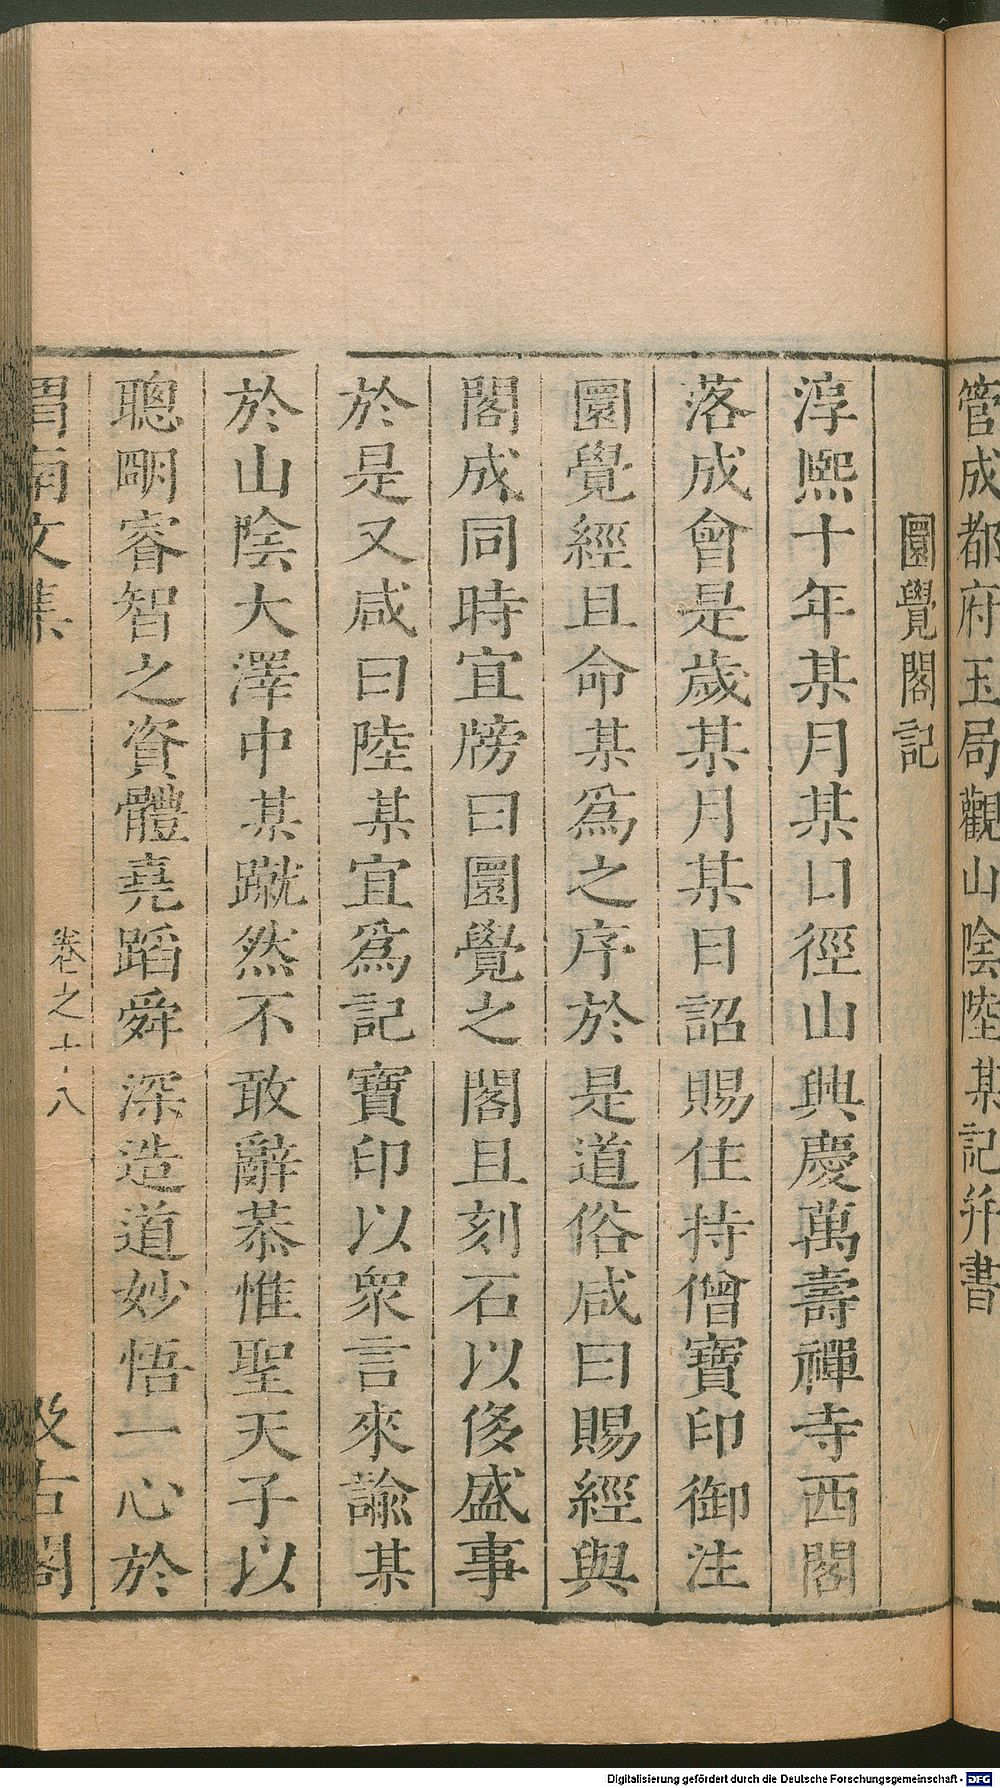 管成都府玉局觀山陰陸某記并書
圜覺閣記
淳熙十年某月某日徑山興慶萬壽禪寺西閣
落成會是歲某月某日詔賜住持僧寶印御注
圜覺經且命某爲之序於是道俗咸曰賜經與
閣成同時宜牓曰圜覺之閣且刻石以侈盛事
於是又咸曰陸某宜爲記寶印以衆言來諭某
於山陰大澤中某蹴然不敢辭恭惟聖天子以
聰明睿智之資體堯蹈舜深造道妙悟一心於
渭南文集 卷之十八 汲古閣
Digitalisierung gefördert durch die Deutsche Forschungsgemeinschaft - DFG